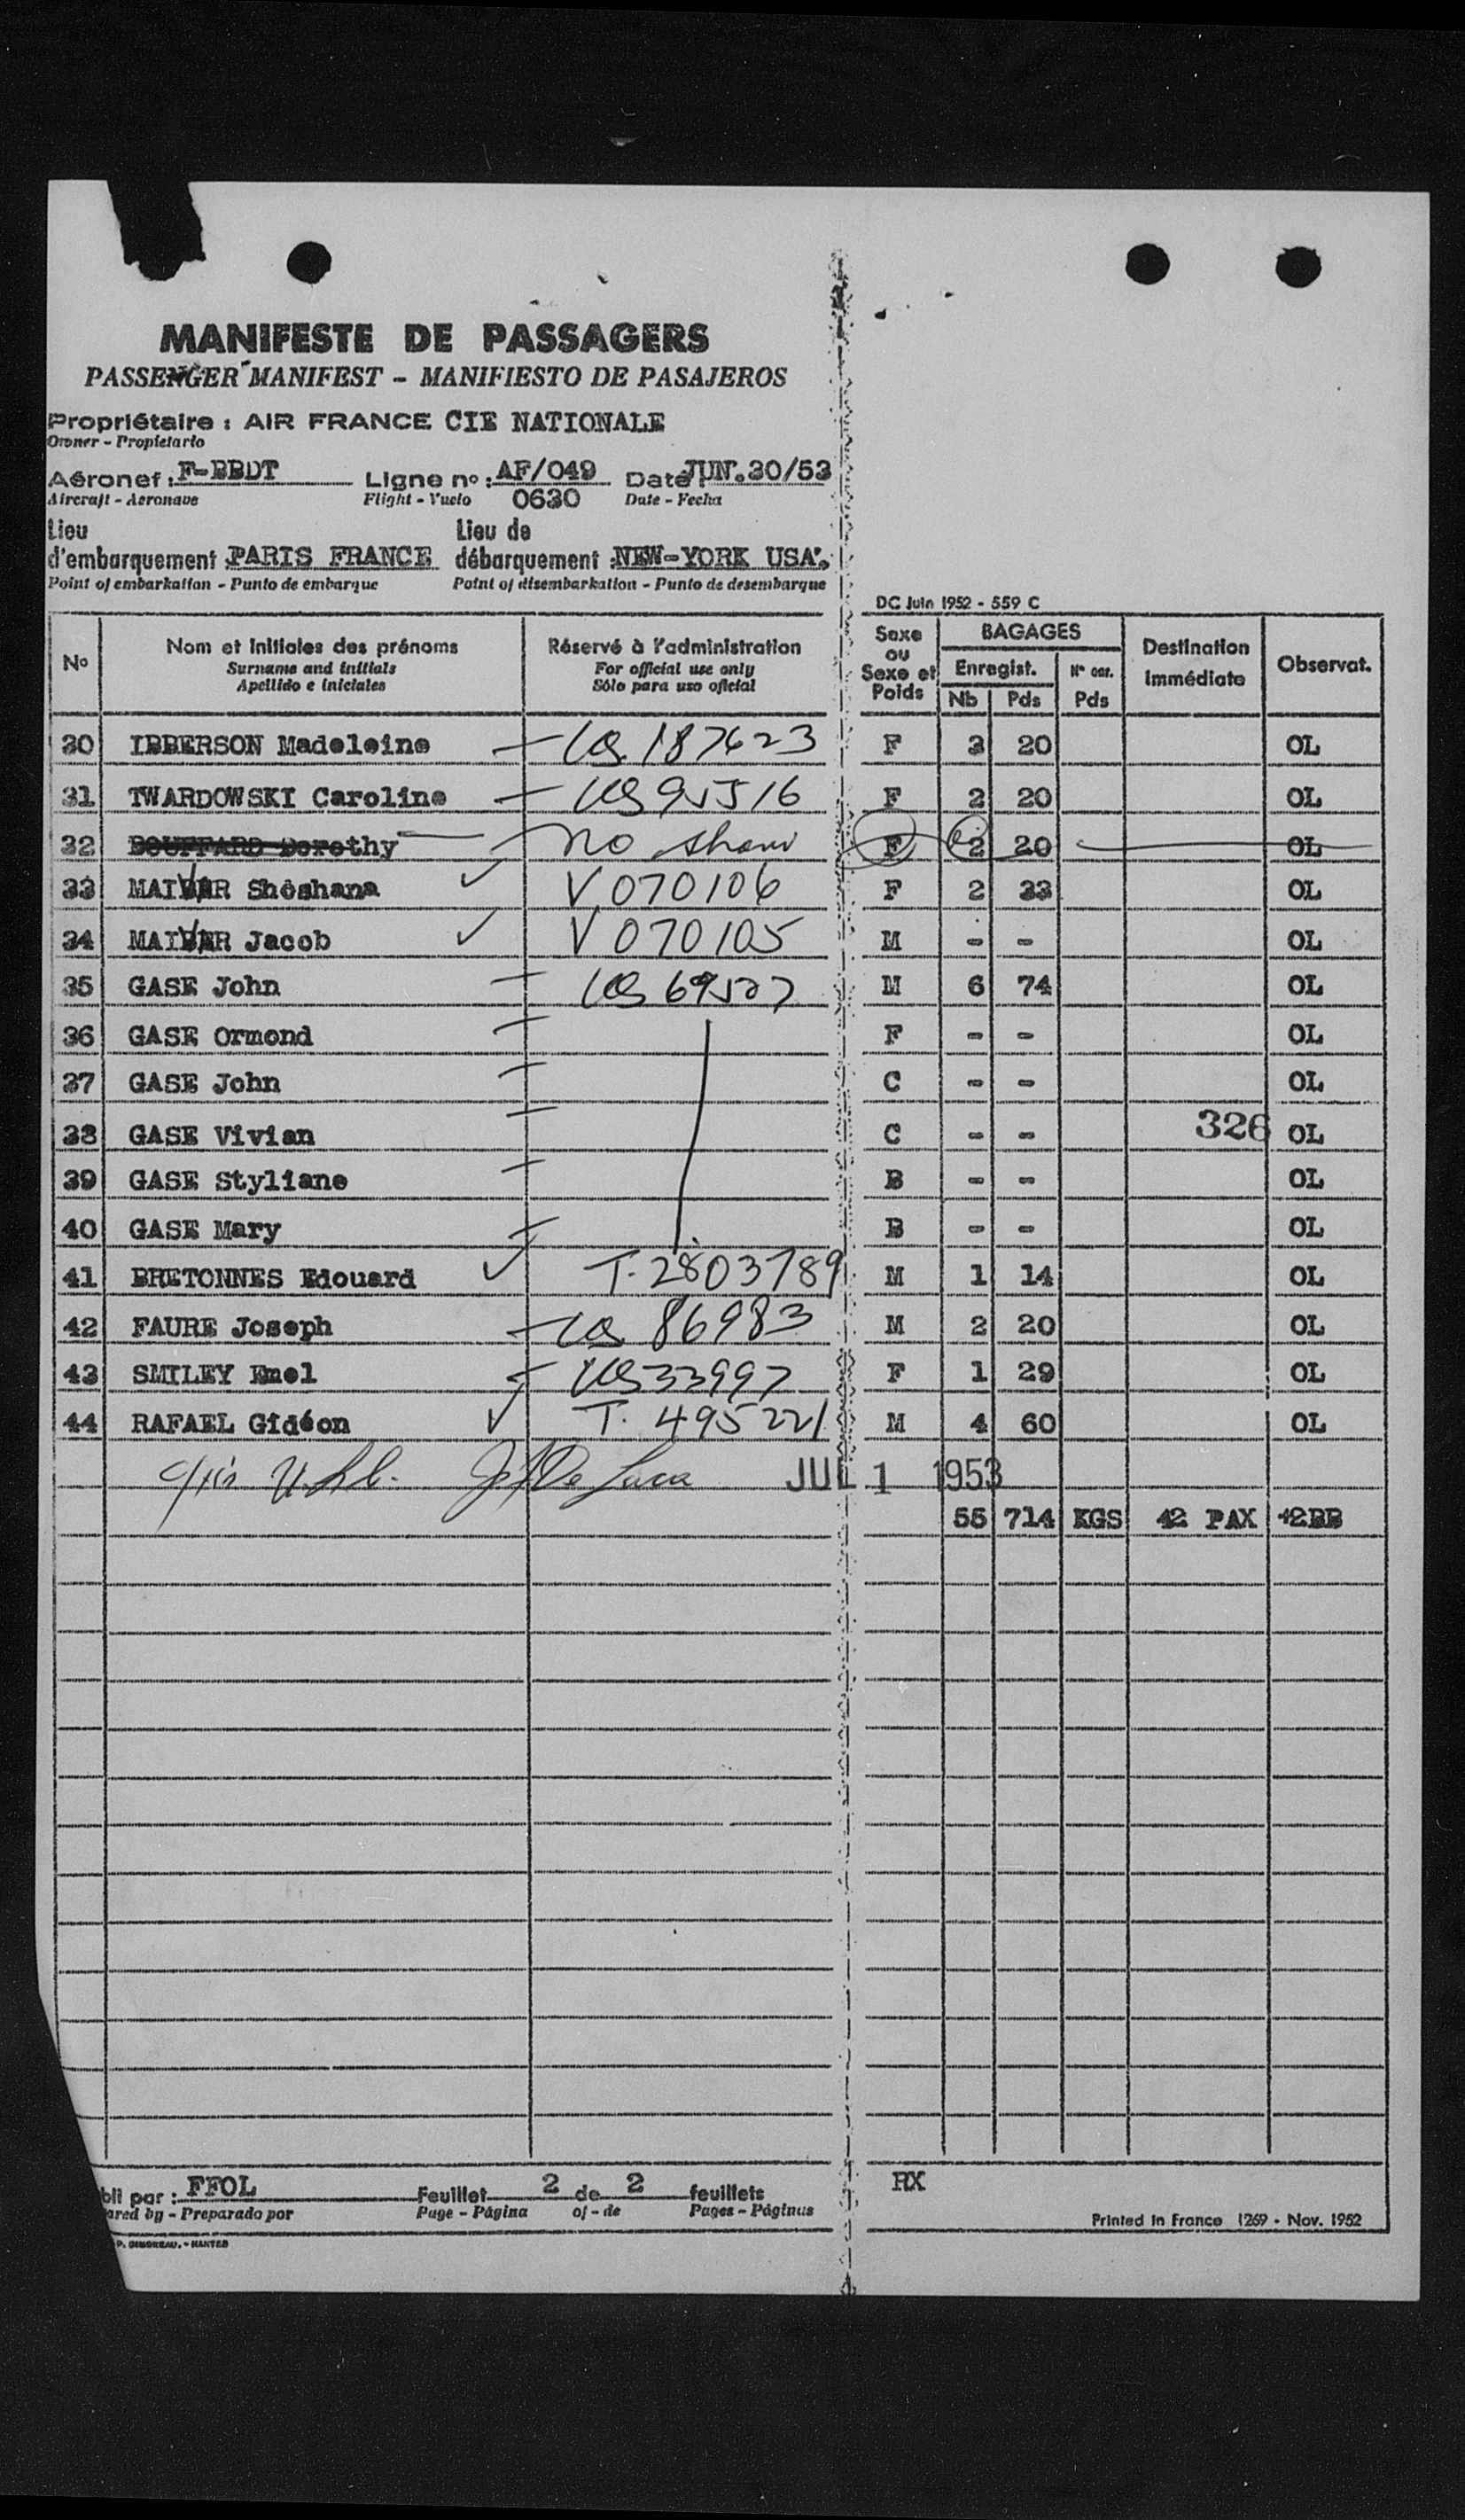 MANIFESTE DE PASSAGERS
PASSENGER MANIFEST - MANIFIESTO DE PASAJEROS
Propriétaire : AIR FRANCE CIE NATIONALE
Owner - Propietario
Aéronef : F-BBDT Ligne no : AF/049 Date JUN.30/53
Aircraft - Aeronave Flight - Vuelo 0630 Date - Fecha
Lieu Lieu de
d'embarquement PARIS FRANCE débarquement : NEW-YORK USA.
Point of embarkation - Punto de embarque Point of disembarkation - Punto de desembarque
DC Juin 1952 - 559 C
No Nom et initiales des prénoms Réservé à l'administration Sexe ou Sexe et Poids BAGAGES Destination immédiate Observat.
Surname and initials For official use only Enregist. No car.
Apellido e iniciales Sólo para uso oficial Nb Pds Pds
30 IBBERSON Madeleine — US 187623 F 3 20 OL
31 TWARDOWSKI Caroline — US 95516 F 2 20 OL
32 BOUFFARD Dorothy no show F 2 20 OL
33 MAIMAR Shoshana ✓ V 070106 F 2 33 OL
34 ✓ V 070105 M - - OL
35 GASE John — M 6 74 OL
36 GASE Ormond — F - - OL
37 GASE John — C - - OL
38 GASE Vivian — C - - 326 OL
39 GASE Styliane — B - - OL
40 GASE Mary — B - - OL
41 BRETONNES Edouard ✓ T. 2803789 M 1 14 OL
42 FAURE Joseph — US 86983 M 2 20 OL
43 SMILEY Emel — US 33997 F 1 29 OL
44 RAFAEL Gidéon ✓ T. 495221 M 4 60 OL
JUL 1 1953
55 714 KGS 42 PAX +2BB
bli par : FFOL Feuillet 2 de 2 feuillets RX
ared by - Preparado por Page - Página of - de Pages - Páginas
Printed in France 1269 - Nov. 1952